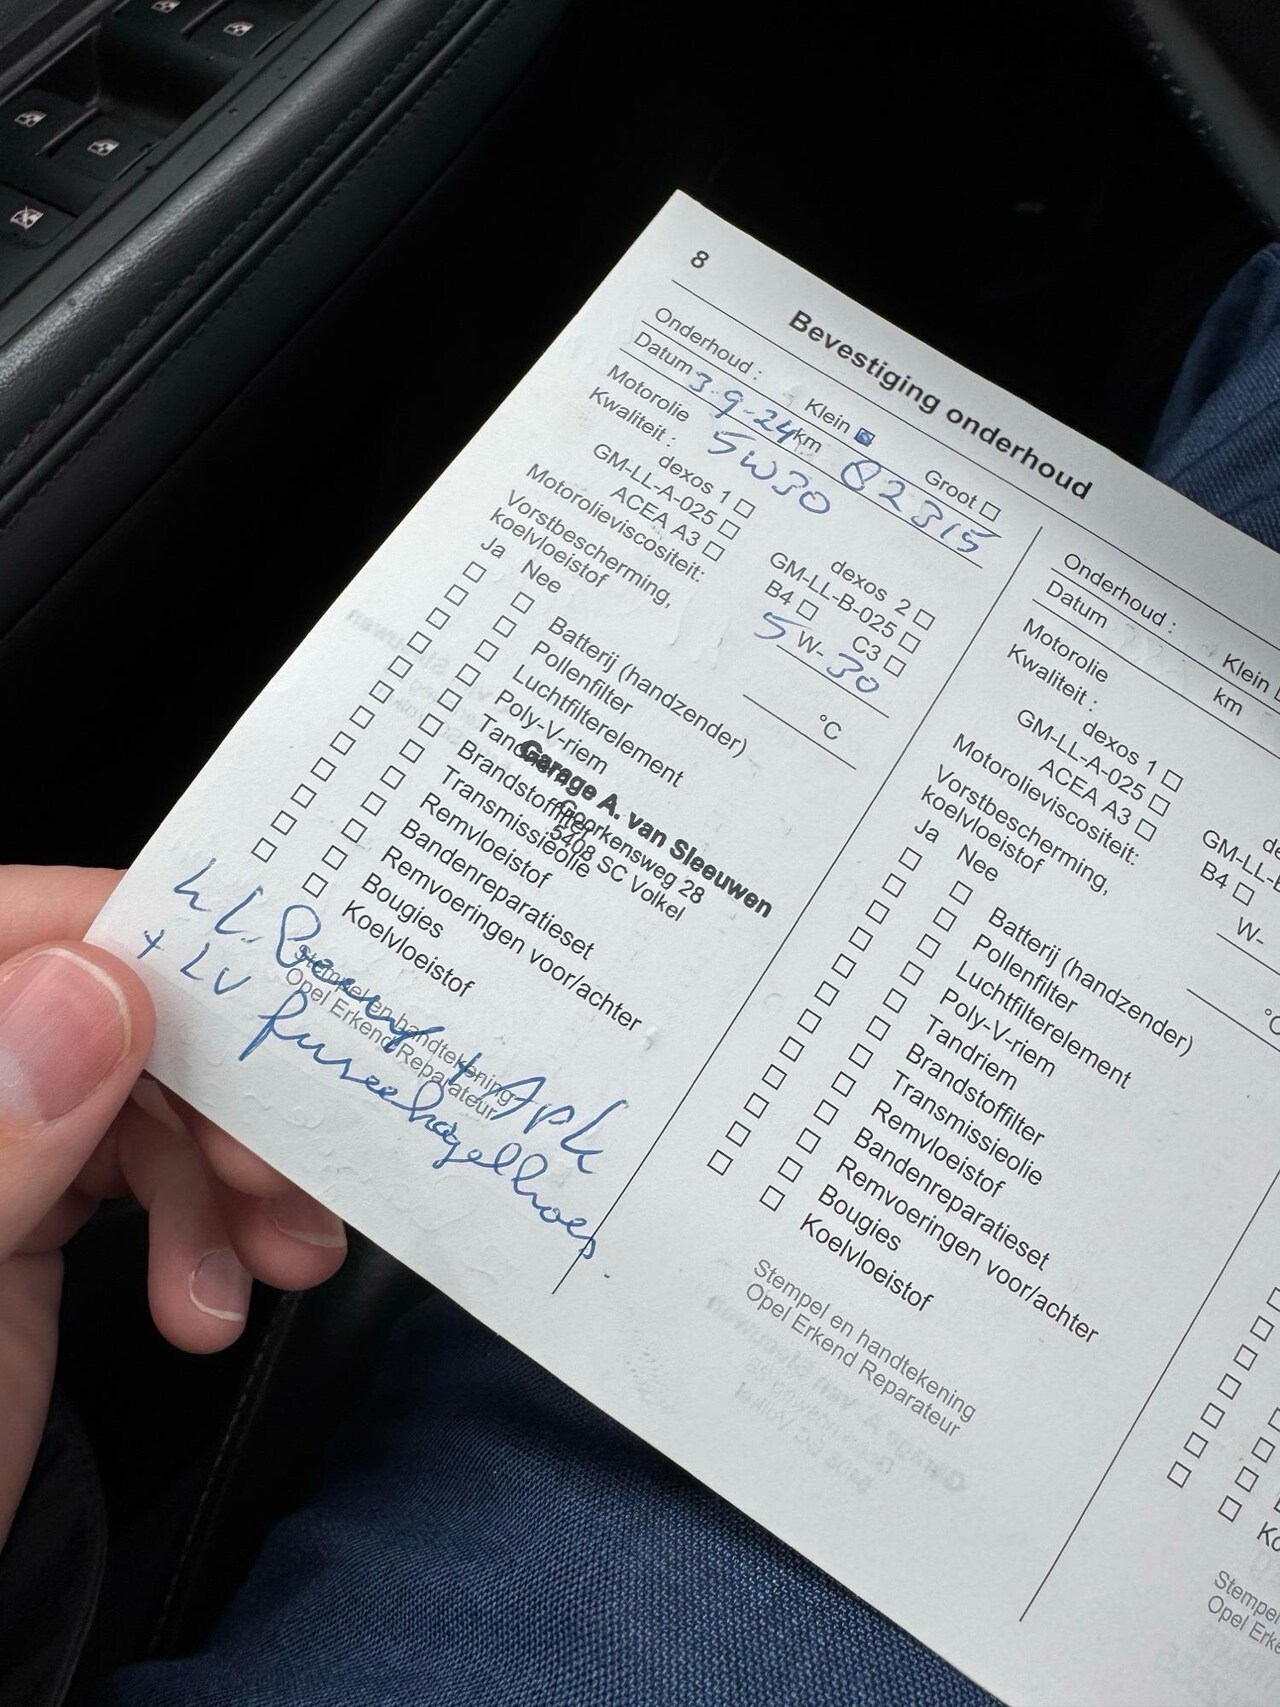 8
Bevestiging onderhoud
Onderhoud : Klein Groot
Datum 3-9-24 km 82315
Motorolie 5W30
Kwaliteit :
dexos 1 dexos 2
GM-LL-A-025 GM-LL-B-025
ACEA A3 B4 C3
Motorolieviscositeit: 5 W- 30
Vorstbescherming,
koelvloeistof °C
Ja Nee
Batterij (handzender)
Pollenfilter
Luchtfilterelement
Poly-V-riem
Tandriem
Brandstoffilter
Transmissieolie
Remvloeistof
Bandenreparatieset
Remvoeringen voor/achter
Bougies
Koelvloeistof
Garage A. van Sleeuwen
Goorkensweg 28
5408 SC Volkel
Stempel en handtekening
Opel Erkend Reparateur
kl. Beurt + Apk
+ LV fuseekogelhoes
Onderhoud : Klein
Datum km
Motorolie
Kwaliteit :
dexos 1
GM-LL-A-025 GM-LL-
ACEA A3 B4
Motorolieviscositeit: W-
Vorstbescherming,
koelvloeistof °C
Ja Nee
Batterij (handzender)
Pollenfilter
Luchtfilterelement
Poly-V-riem
Tandriem
Brandstoffilter
Transmissieolie
Remvloeistof
Bandenreparatieset
Remvoeringen voor/achter
Bougies
Koelvloeistof
Stempel en handtekening
Opel Erkend Reparateur
Ko
Stempe
Opel Erke